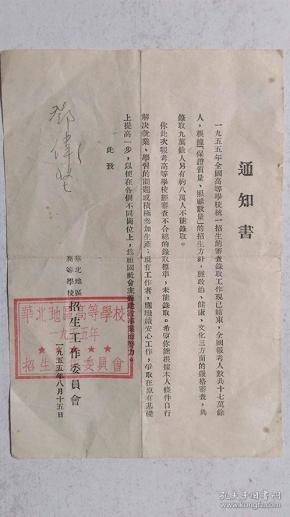 通知書
一九五五年全國高等學校統一招生的審查錄取工作現已結束，全國報考人數共十七萬餘
人，根據「保證質量、照顧數量」的招生方針，經政治、健康、文化三方面的嚴格審查，共
錄取九萬餘人另有約八萬人不能錄取。
你此次報考高等學校經審查不合於錄取標準，未能錄取。希望你能根據本人條件自行
解決就業、學習的問題或積極參加生產；現有工作者，應繼續安心工作，爭取在原有基礎
上提高一步，以便在各個不同崗位上，為祖國社會主義建設事業而努力。
此致
鄧偉
華北地區
高等學校
招生工作委員會
一九五五年八月十五日
華北地區高等學校
一九五五年
招生工作委員會
孔夫子旧书网